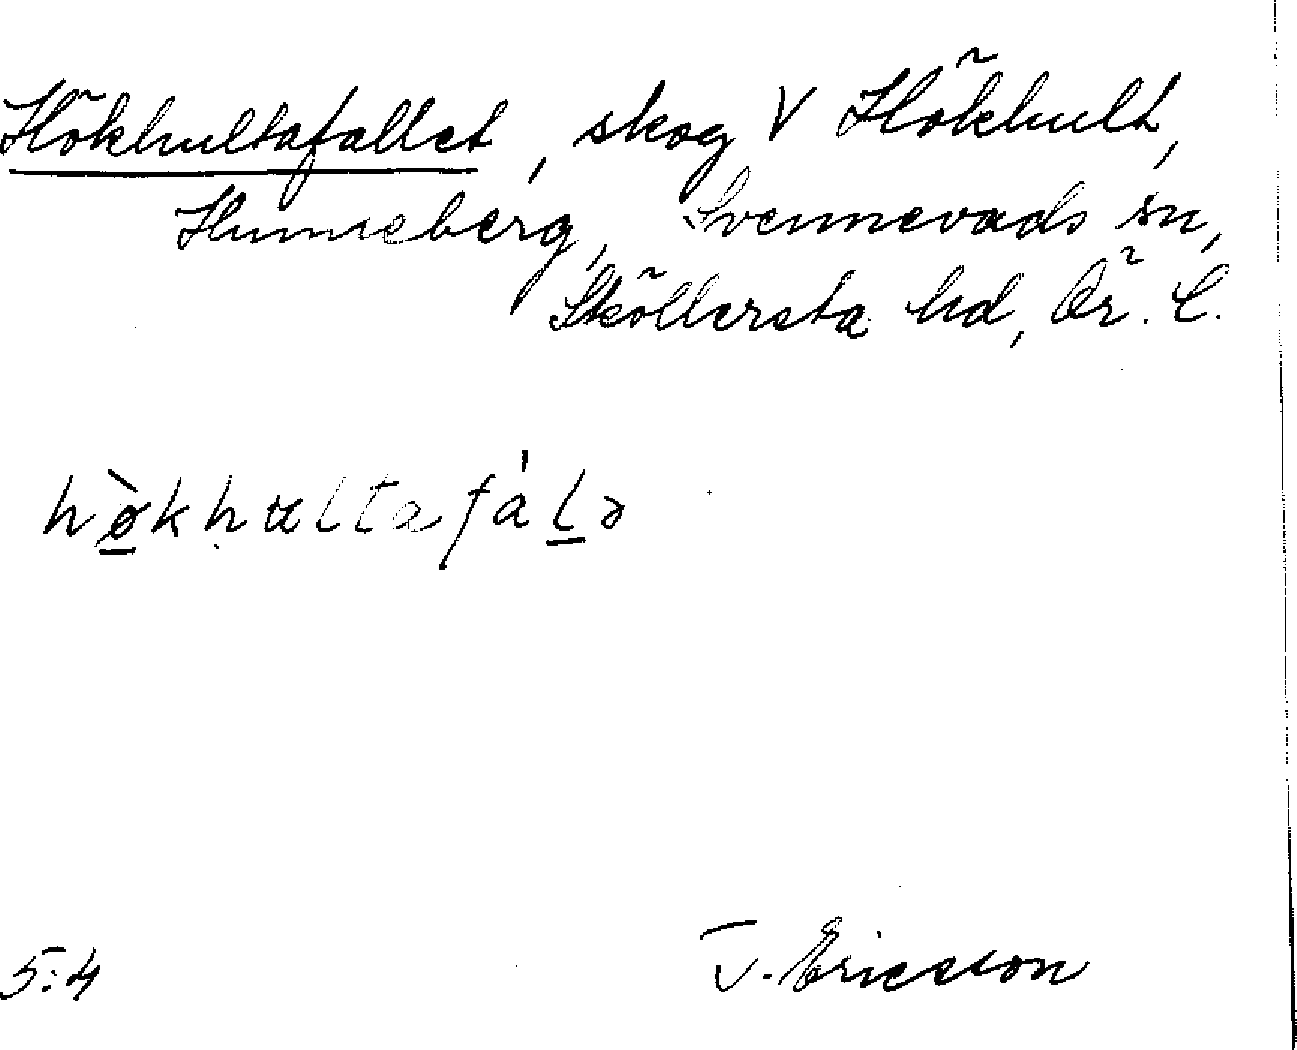 Hökhultafallet, skog V Hökhult,
Hunneberg, Svennevads sn,
Sköllersta hd, Ör. l.
hø̀khultafálə
5:4
J. Ericsson